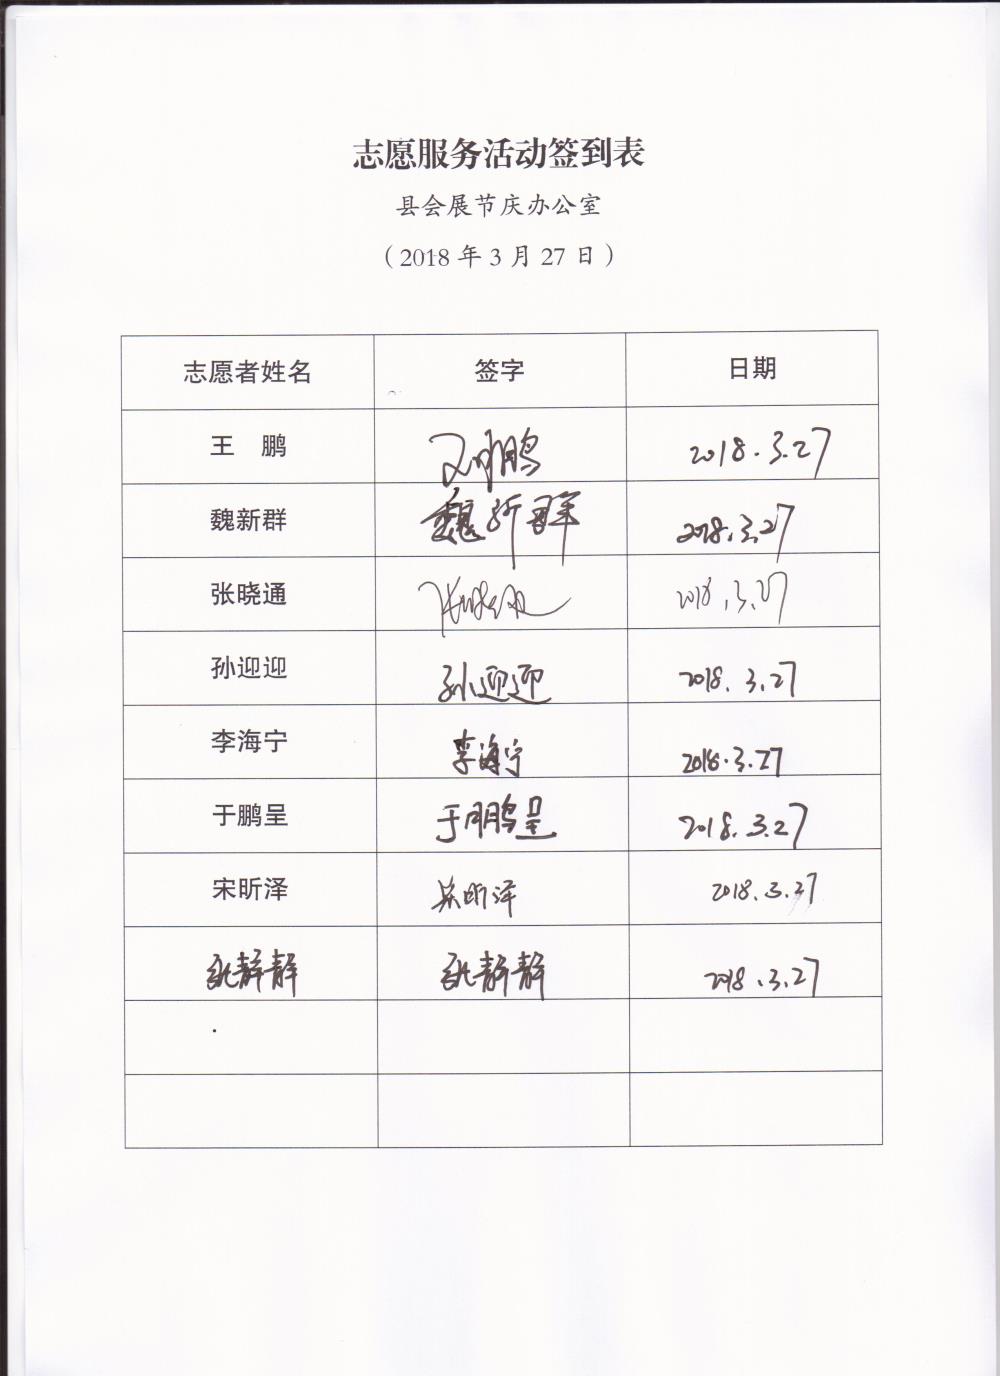 志愿服务活动签到表
县会展节庆办公室
（2018 年 3 月 27 日）
志愿者姓名 签字 日期
王 鹏 2018.3.27
魏新群 魏新群 2018.3.27
张晓通 2018.3.27
孙迎迎 孙迎迎 2018.3.27
李海宁 李海宁 2018.3.27
于鹏呈 于鹏呈 2018.3.27
宋昕泽 宋昕泽 2018.3.27
张静静 张静静 2018.3.27